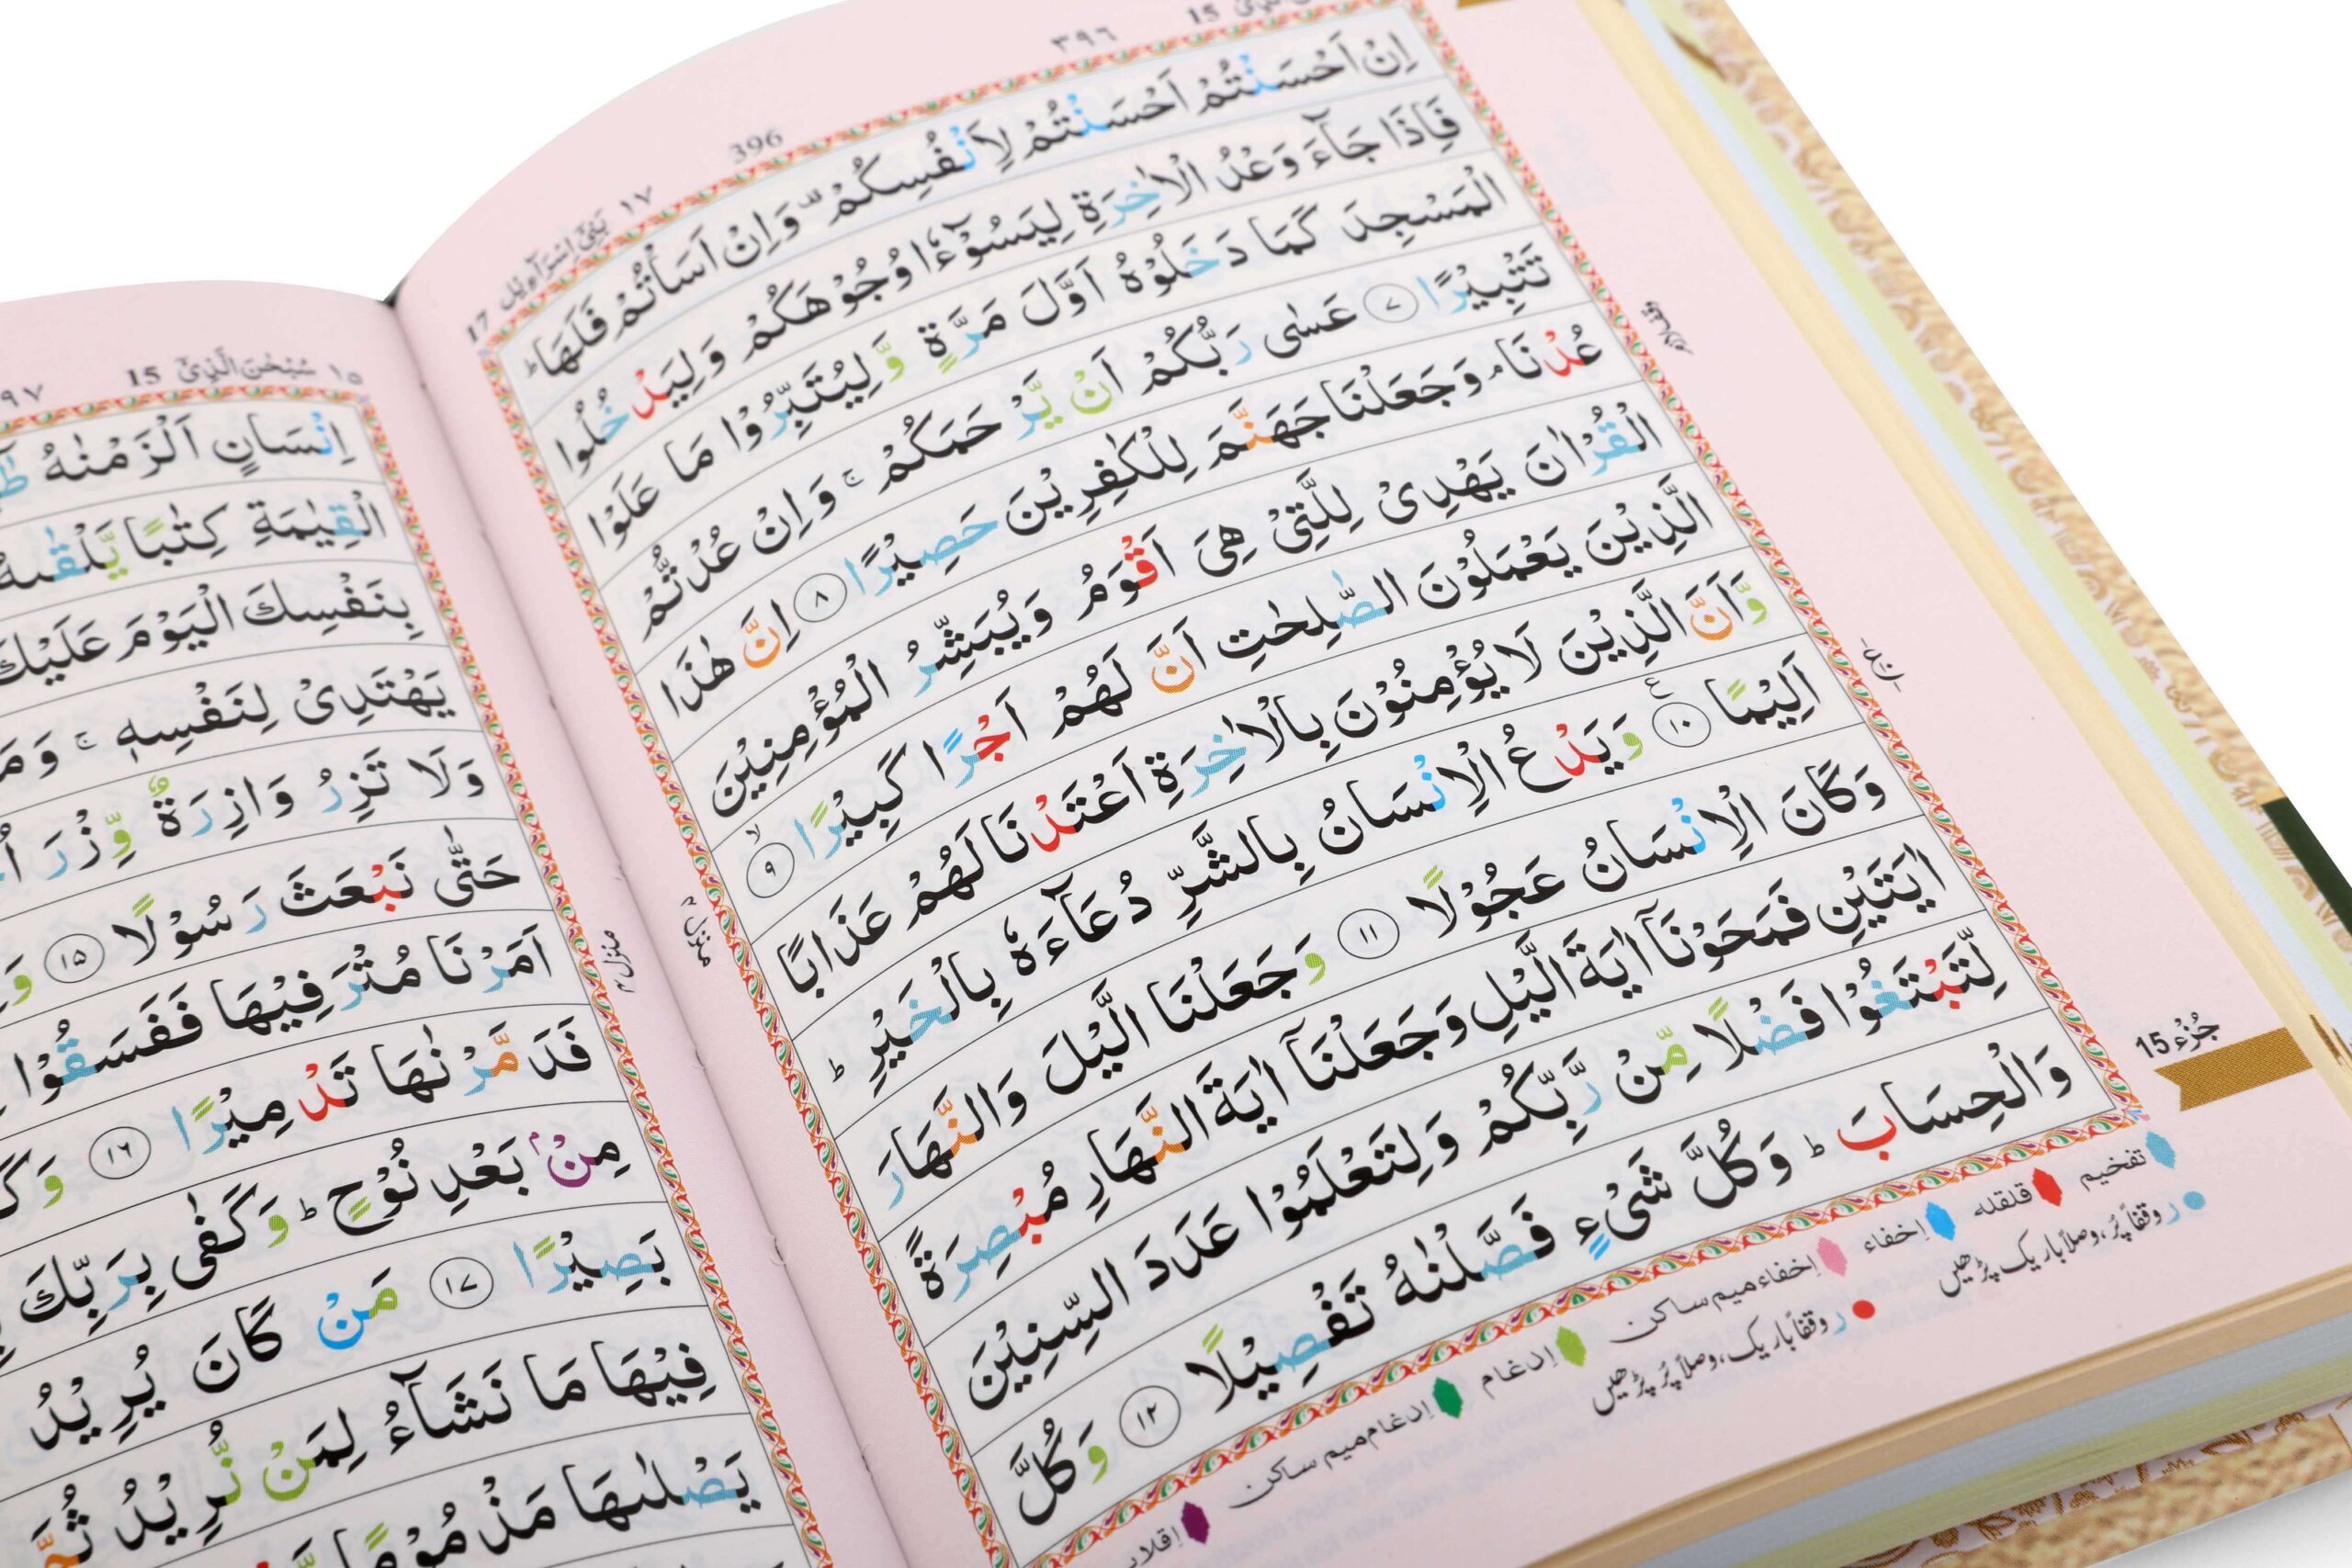 15
۳۹٦
396
١٧
بَنِیْٓ اِسْرَآءِیْل 17
اِنْ اَحْسَنْتُمْ اَحْسَنْتُمْ لِاَنْفُسِكُمْ ۫ وَاِنْ اَسَاْتُمْ فَلَهَا ؕ
فَاِذَا جَآءَ وَعْدُ الْاٰخِرَةِ لِیَسُوْٓءٗا وُجُوْهَكُمْ وَلِیَدْخُلُوا
الْمَسْجِدَ كَمَا دَخَلُوْهُ اَوَّلَ مَرَّةٍ وَّلِیُتَبِّرُوْا مَا عَلَوْا
تَتْبِیْرًا ٧ عَسٰی رَبُّكُمْ اَنْ یَّرْحَمَكُمْ ۚ وَاِنْ عُدْتُّمْ
عُدْنَا ۘ وَجَعَلْنَا جَهَنَّمَ لِلْكٰفِرِیْنَ حَصِیْرًا ٨ اِنَّ هٰذَا
الْقُرْاٰنَ یَهْدِیْ لِلَّتِیْ هِیَ اَقْوَمُ وَیُبَشِّرُ الْمُؤْمِنِیْنَ
الَّذِیْنَ یَعْمَلُوْنَ الصّٰلِحٰتِ اَنَّ لَهُمْ اَجْرًا كَبِیْرًا ۙ ٩
وَّاَنَّ الَّذِیْنَ لَا یُؤْمِنُوْنَ بِالْاٰخِرَةِ اَعْتَدْنَا لَهُمْ عَذَابًا
اَلِیْمًا ١٠ وَیَدْعُ الْاِنْسَانُ بِالشَّرِّ دُعَآءَهٗ بِالْخَیْرِ ؕ
وَكَانَ الْاِنْسَانُ عَجُوْلًا ١١ وَجَعَلْنَا الَّیْلَ وَالنَّهَارَ
اٰیَتَیْنِ فَمَحَوْنَآ اٰیَةَ الَّیْلِ وَجَعَلْنَآ اٰیَةَ النَّهَارِ مُبْصِرَةً
لِّتَبْتَغُوْا فَضْلًا مِّنْ رَّبِّكُمْ وَلِتَعْلَمُوْا عَدَدَ السِّنِیْنَ
وَالْحِسَابَ ؕ وَكُلَّ شَیْءٍ فَصَّلْنٰهُ تَفْصِیْلًا ١٢ وَكُلَّ
منزل ٤
جُزْء 15
تفخیم
قلقله
اِخفاء
اِخفاء میم ساكن
اِدغام
اِدغام میم ساكن
ر وقفاً پُر، وصلاً باریک پڑھیں
ر وقفاً باریک، وصلاً پُر پڑھیں
١٥ سُبْحٰنَ الَّذِیْٓ 15
٩٧
اِنْسَانٍ اَلْزَمْنٰهُ
الْقِیٰمَةِ كِتٰبًا یَّلْقٰىهُ
بِنَفْسِكَ الْیَوْمَ عَلَیْكَ
یَهْتَدِیْ لِنَفْسِهٖ ۚ وَمَ
وَلَا تَزِرُ وَازِرَةٌ وِّزْرَ
حَتّٰی نَبْعَثَ رَسُوْلًا ١٥
اَمَرْنَا مُتْرَفِیْهَا فَفَسَقُوْا
فَدَمَّرْنٰهَا تَدْمِیْرًا ١٦ وَكَ
مِنْۢ بَعْدِ نُوْحٍ ؕ وَكَفٰی بِرَبِّكَ
بَصِیْرًا ١٧ مَنْ كَانَ یُرِیْدُ
فِیْهَا مَا نَشَآءُ لِمَنْ نُّرِیْدُ ثُمَّ
یَصْلٰىهَا مَذْمُوْمًا
منزل ٤